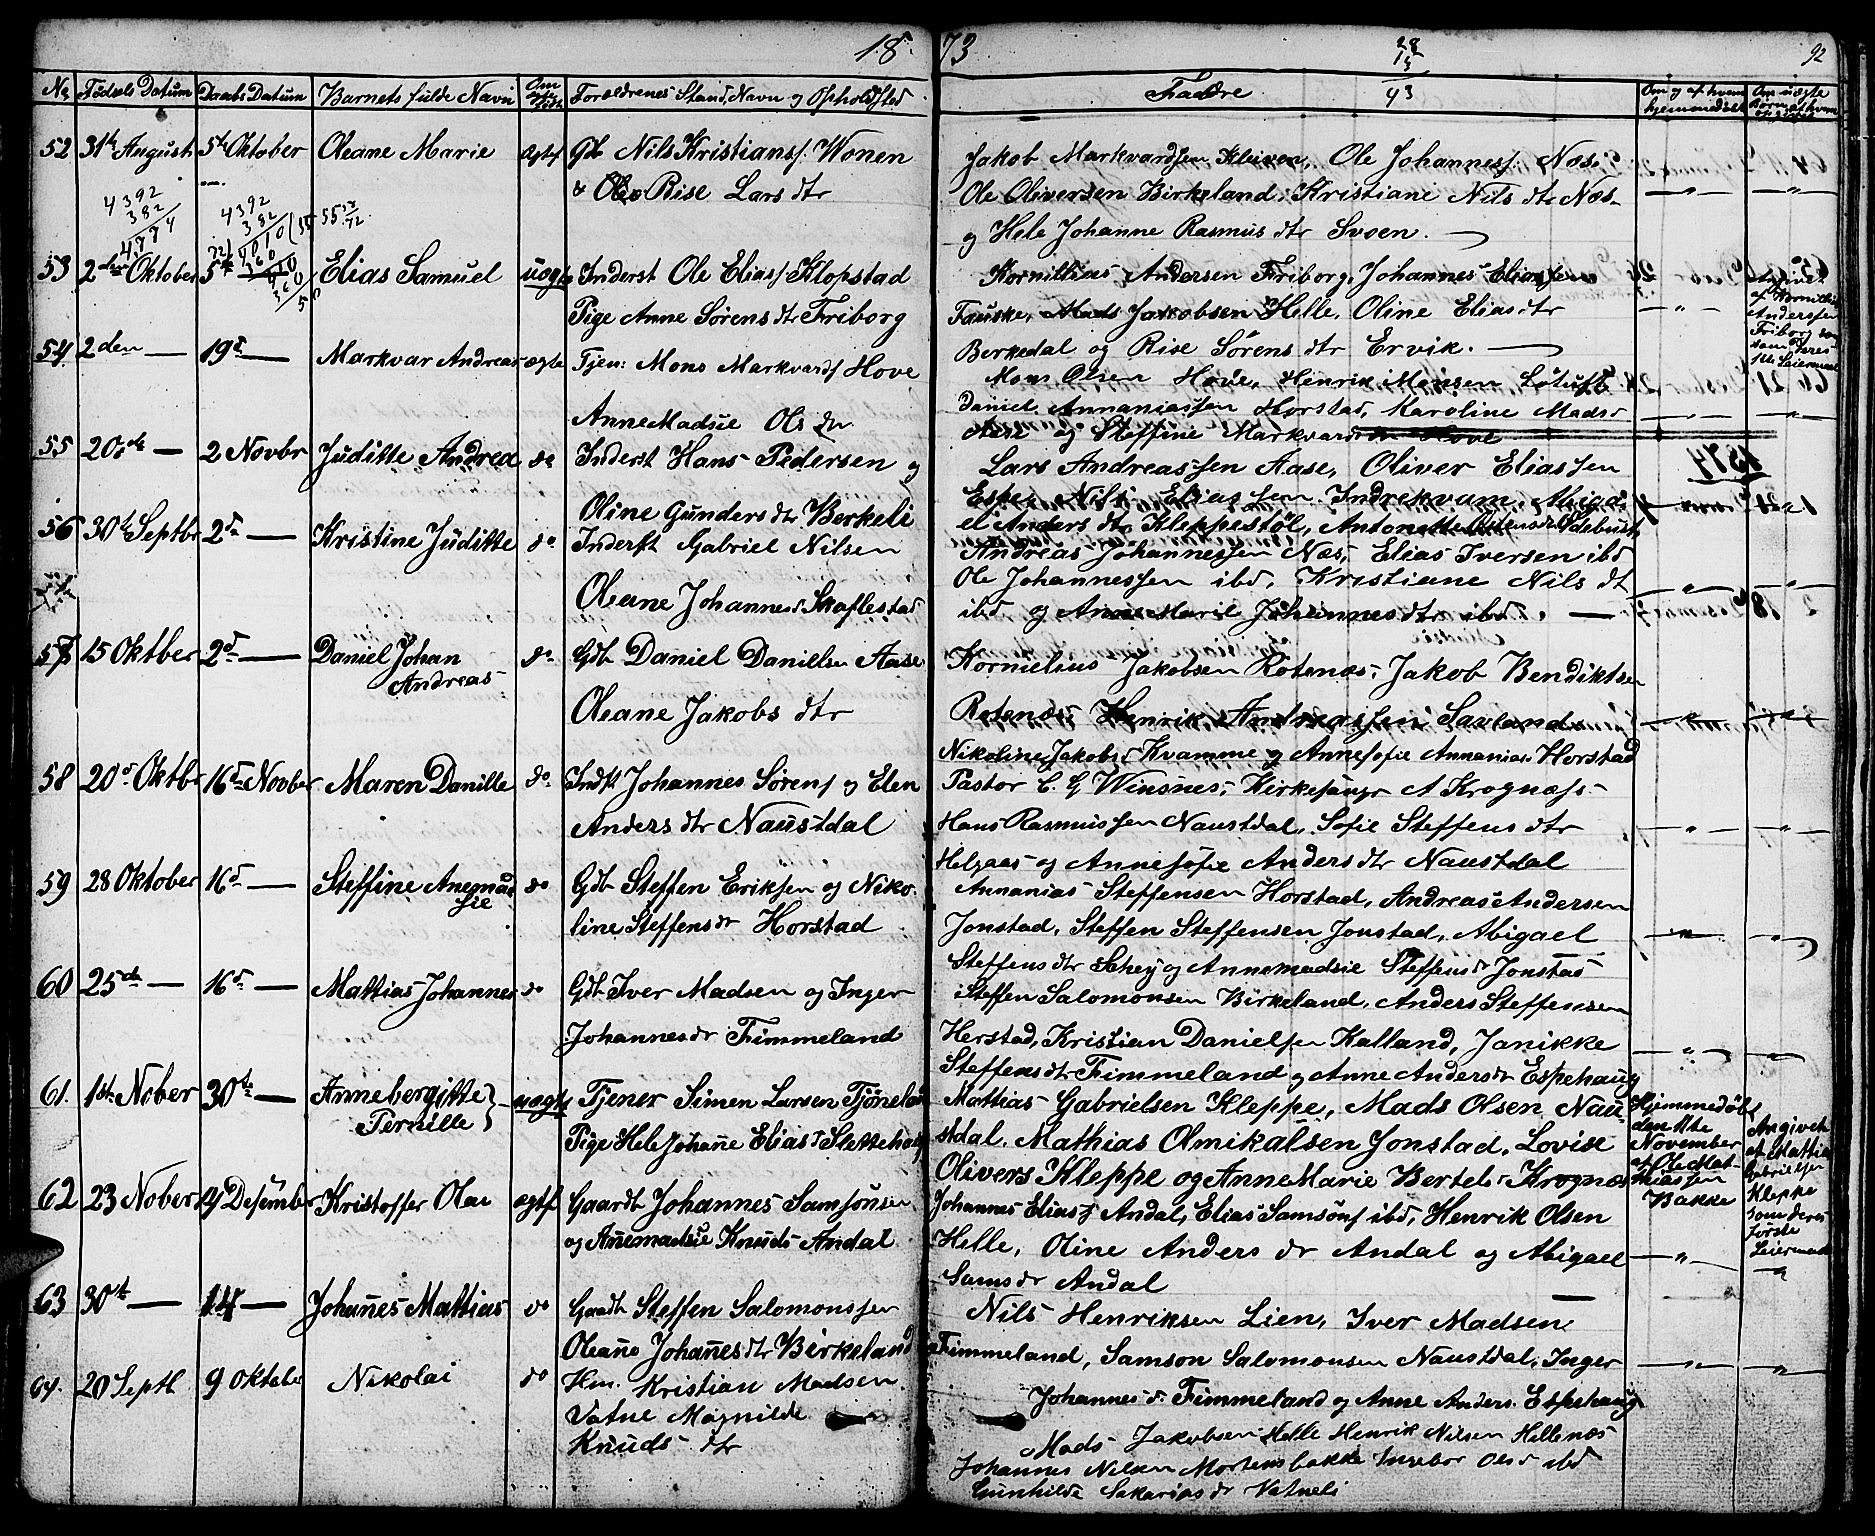 18 73
92
No Fødsels Datum Daabs Datum Barnets fulde Navn Om ægte Forældrenes Stand, Navn og Opholdsted
Faddre
Om og af hvem hjemmedøbt
Om uægte Børn af hvem
28
15
43
52 31te August 5te Oktober Oleane Marie ægtf Gb Nils Kristians. Wonen
& Rise Lars dtr
Jakob Markvardsen Kleiven, Ole Johannesf. Næs
Ole Oliversen Birkeland, Kristiane Nils dtr Næs
og Hele Johanne Rasmus dtr Svoen
4392
382
4774
4392
382
53 2den Oktober 5te Elias Samuel uægte Inderst Ole Eliasf Klopstad
Pige Anne Sørens dtr Friborg
Kornillius Andersen Friborg, Johannes Eliassen
Fauske, Mads Jakobsen Helle, Oline Elias dtr
Berkedal og Rise Sørens dtr Ervik.
Angivet af Kornillius Anderssen Friborg som Deres 1ste Leiermaal
54 2den — 19d — Markvar Andreas ægte Tjen: Mons Markvardsf Hove
Anne Madsie Ols dtr
Mons Olsen Hove, Henrik Monsen Løtuft
Daniel Annaniassen Horstad, Karoline Mads d
Aase og Steffine Markvards dtr Hove
55 20de — 2 Novbr Juditte Andrea do Inderst Hans Pedersen og
Oline Gunders dtr Berkeli
Lars Andreassen Aase, Oliver Eliassen
Espe, Nils Eliassen Indrekvam, Abiga-
el Anders dtr Kleppestøl, Antonette
56 30te Septbr 2d — Kristine Juditte do Inderst Gabriel Nilsen
Oleane Johannes d Skaflestad
Andreas Johannessen Næs, Elias Iversen ibd
Ole Johannessen ibd, Kristiane Nils dt
ibd og Anne Marie Johannes dtr ibd
57 15 Oktber 2d — Daniel Johan
Andreas
do Gdb Daniel Danielsen Aase
Oleane Jakobs dtr
Kornelius Jakobsen Rotenæs, Jakob Bendiktsen
Rotenæs, Henrik Andreassen Savland
Nikoline Jakobs d Kvamme og Annesofie Annanias d Horstad
58 20d Oktbr 16d Novber Maren Danille do Indst Johannes Sørensf og Elen
Anders dtr Naustdal
Pastor C. G Winsnes, Kirkesanger A Krognæss
Hans Rasmussen Naustdal, Sofie Steffens dtr
Helgaas og Annesøfie Anders dtr Naustdal
59 28 Oktober 16d — Steffine Anemad
sie
do Gdb Steffen Eriksen og Niko-
line Steffens dr Horstad
Annanias Steffensen Horstad, Andreas Andersen
Jonstad, Steffen Steffensen Jonstad, Abigael
Steffens dtr Schey og Annemadsie Steffens d Jonstad
60 25de — 16d — Mattias Johannes do Gdb Iver Madsen og Inger
Johannes dr Fimmeland
Steffen Salomonsen Birkeland, Anders Steffensen
Herstad, Kristian Danielsen Kalland, Janikke
Steffens dtr Fimmeland og Anne Anders dr Espehaug
61. 1ste Nober 30te — Annebergitte
Pernille
uægte Tjener Simen Larsen Tjøneland
Pige Hele Johane Elias d Slettehaug
Mathias Gabrielsen Kleppe, Mads Olsen Nau-
stdal, Mathias Olmikalsen Jonstad, Lovise
Olivers Kleppe og Anne Marie Bertels Krognæs
Hjemmedøbt den 11te November af Ole Mathiassen Bakke
Angivet af Mattias Gabrielsen Kleppe som deres første Leiermaal
62 23 Nober 4 Desember Kristoffer Olai ægtf. Gaardb Johannes Samsonsen
og Anemadsie Knuds Andal
Johannes Eliasf Andal, Elias Samsonf ibd, Henrik Olsen
Helle, Oline Anders dr Andal og Abigael
Sams dr Andal
63 30te — 14 — Johanes Mattias do Gaadb Steffen Salomonssen
Oleane Johanes dtr Birkeland
Nils Henriksen Lien, Iver Madsen
Fimmeland, Samson Salomonsen Naustdal, Inger
Johannes d Fimmeland og Anne Anders. Espehaug
64. 20 Septb 9 Oktober Nikolai do Hm. Kristian Madsen
Vatne Magnilde
Knuds dtr
Mads Jakobsen Helle Henrik Nilsen Hillenæs
Johannes Nilsen Mortensbakke Ingebor Ols d ibd
Gunhilde Sakarias dr Vatneli